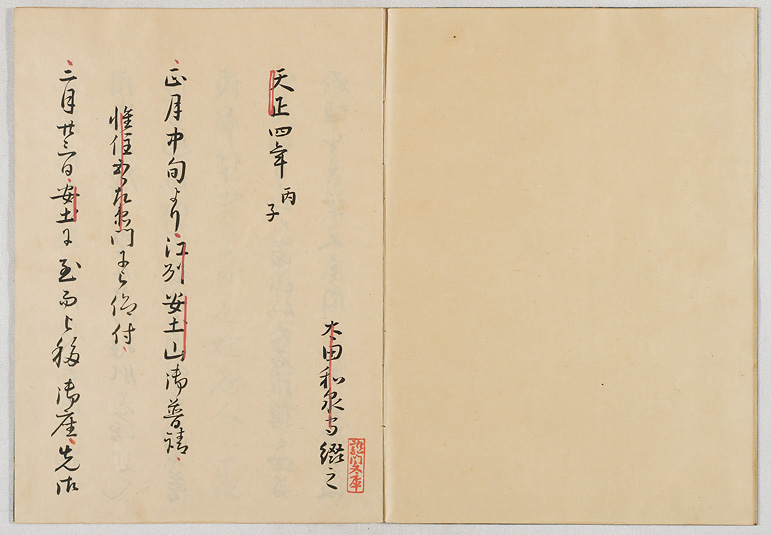 太田和泉守綴之
天正四年丙子
正月中旬より江州安土山御普請
惟住五郎左衛門に被仰付
二月廿三日安土に至而被移御座先御